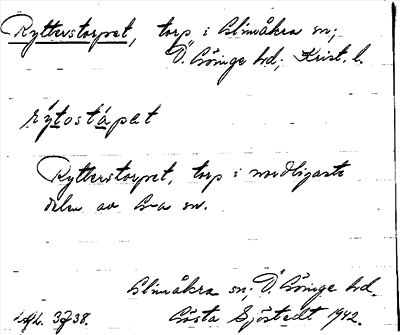 Rytterstorpet, torp i Glimåkra sn;
Ö. Göinge hd; Krist. l.
rýtostápat
Rytterstorpet, torp i nordligaste
delen av G-a sn.
Glimåkra sn, Ö. Göinge hd.
Gösta Sjöstedt 1942.